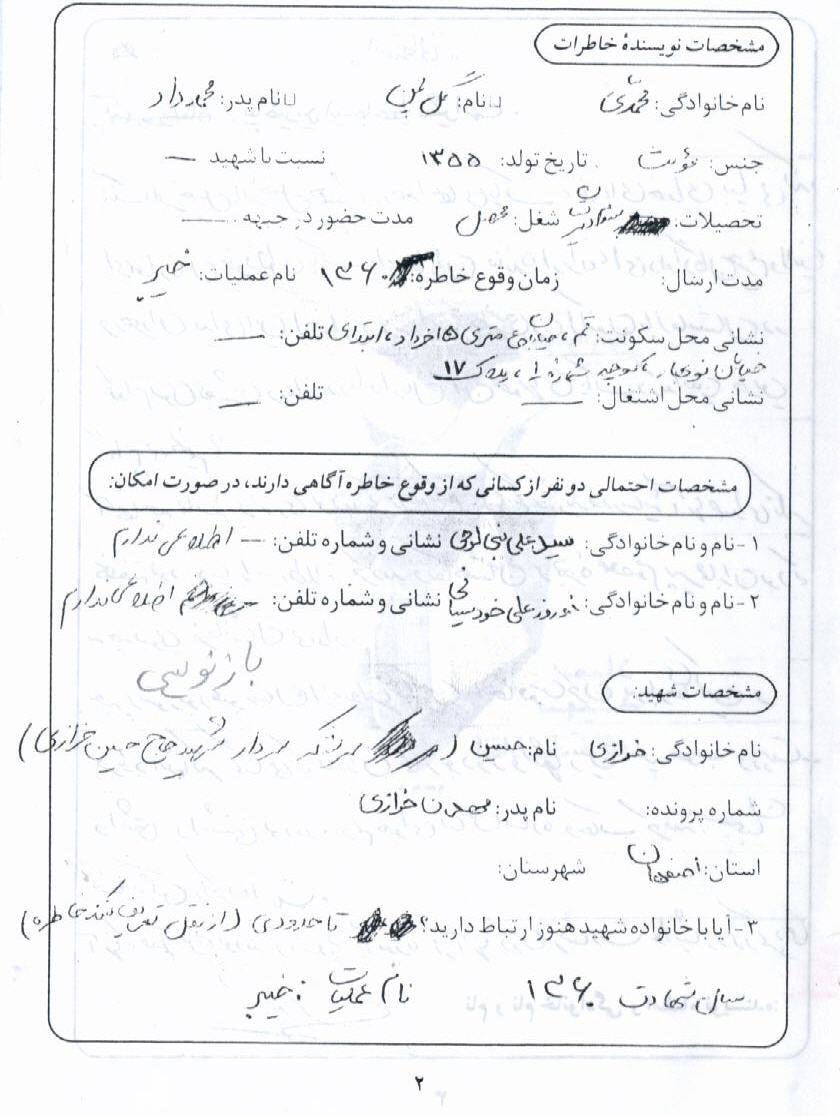 مشخصات نویسندهٔ خاطرات
نام خانوادگی: محمدی نام: گل نام پدر: محمد داد
جنس: مؤنث تاریخ تولد: ۱۳۵۵ نسبت با شهید —
تحصیلات: شغل: محصل مدت حضور در جبهه: —
مدت ارسال: زمان وقوع خاطره: ۱۳۶۰ نام عملیات: خیبر
نشانی محل سکونت: قم، خیابان متری ۱۵ خرداد، ابتدای تلفن: —
خیابان نوبهار، کوچه شماره ۱، پلاک ۱۷
نشانی محل اشتغال: — تلفن: —
مشخصات احتمالی دو نفر از کسانی که از وقوع خاطره آگاهی دارند، در صورت امکان:
۱- نام و نام خانوادگی: سید علی بنی لوحی نشانی و شماره تلفن: — اطلاعی ندارم
۲- نام و نام خانوادگی: نوروز علی نشانی و شماره تلفن: — اطلاعی ندارم
بازنویسی
مشخصات شهید:
نام خانوادگی: خرازی نام: حسین ( سرلشکر سردار شهید حاج حسین خرازی)
شماره پرونده: نام پدر: خرازی
استان: اصفهان شهرستان:
۳- آیا با خانواده شهید هنوز ارتباط دارید؟ تا حدودی (از نقل تعریف کننده خاطره)
سال شهادت ۱۳۶۰ نام عملیات: خیبر
۲